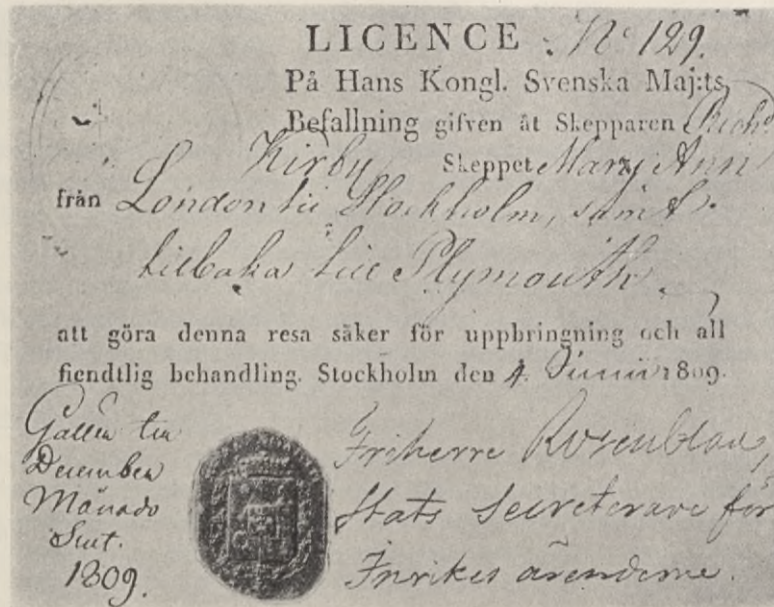 LICENCE. No 129.
På Hans Kongl. Svenska Maj:ts
Befallning gifven åt Skepparen Richd
Kirby Skeppet Mary Ann
från London till Stockholm, samt
tilbaka till Plymouth.
att göra denna resa säker för uppbringning och all
fiendtlig behandling. Stockholm den 4 Junii 1809.
Gäller till
December
Månads
Slut.
1809.
Friherre Rosenblad,
Stats Secreterare för
Inrikes ärenderne.